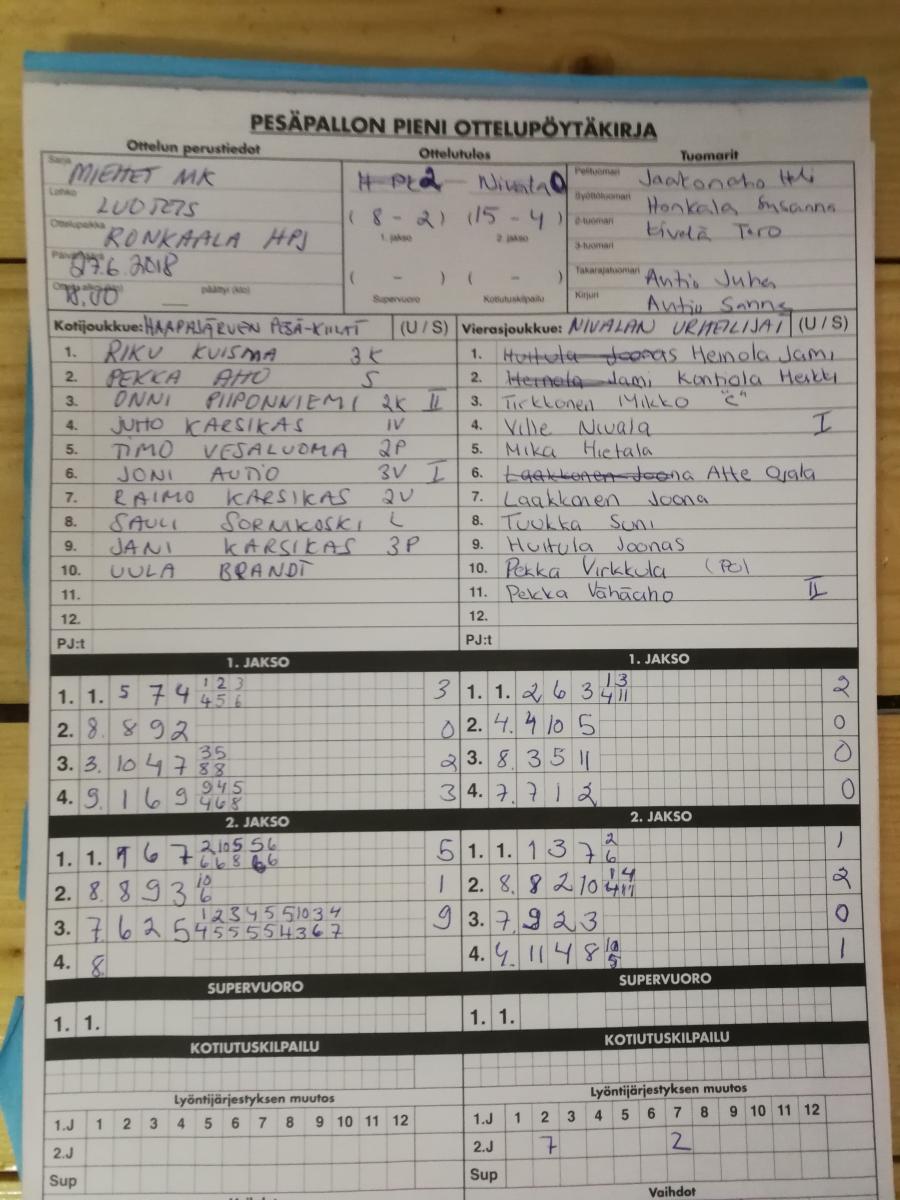 PESÄPALLON PIENI OTTELUPÖYTÄKIRJA
Ottelun perustiedot Ottelutulos Tuomarit
Sarja MIEHET MK
Lohko LUOTEIS
Ottelupaikka RONKAALA HPJ
27.6.2018
18.00 päättyi (klo)
2 - Nivala 0
( 8 - 2 ) ( 15 - 4 )
1. jakso 2. jakso
( - ) ( - )
Supervuoro Kotiutuskilpailu
Pelituomari Jaakonaho
Syöttötuomari Honkala Susanna
2-tuomari Kivelä Tero
3-tuomari
Takarajatuomari Antio Juha
Kirjuri Antio Sanna
Kotijoukkue: HAAPAJÄRVEN PESÄ-KIILAT (U / S) Vierasjoukkue: NIVALAN URHEILIJAT (U / S)
1. RIKU KUISMA 3K 1. Huitula Joonas Heinola Jami
2. PEKKA AHO S 2. Heinola Jami Kontiola Heikki
3. ONNI PIIPONNIEMI 2K II 3. Tirkkonen Mikko "C"
4. JUHO KARSIKAS IV 4. Ville Nivala I
5. TIMO VESALUOMA 2P 5. Mika Hietala
6. JONI AUTIO 3V I 6. Laakkonen Joona Atte Ojala
7. RAIMO KARSIKAS 2V 7. Laakkonen Joona
8. SAULI SORNIKOSKI L 8. Tuukka Suni
9. JANI KARSIKAS 3P 9. Huitula Joonas
10. UULA BRANDT 10. Pekka Virkkula (PE)
11. 11. Pekka Vähäaho II
12. 12.
PJ:t PJ:t
1. JAKSO 1. JAKSO
1. 1. 5 7 4 1 2 3 3 1. 1. 2 6 3 1 3 2
4 5 6 4 11
2. 8. 8 9 2 0 2. 4. 4 10 5 0
3. 3. 10 4 7 3 5 2 3. 8. 3 5 11 0
8 8
4. 9. 1 6 9 9 4 5 3 4. 7. 7 1 2 0
4 6 8
2. JAKSO 2. JAKSO
1. 1. 6 7 2 10 5 5 6 5 1. 1. 1 3 7 2 1
6 6 8 6 6 6
2. 8. 8 9 3 10 1 2. 8. 8 2 10 1 4 2
6 4 11
3. 7. 6 2 5 1 2 3 4 5 5 10 3 4 9 3. 7. 9 2 3 0
4 5 5 5 5 4 3 6 7
4. 8. 4. 4. 11 4 8 10 1
5
SUPERVUORO SUPERVUORO
1. 1. 1. 1.
KOTIUTUSKILPAILU KOTIUTUSKILPAILU
Lyöntijärjestyksen muutos Lyöntijärjestyksen muutos
1.J 1 2 3 4 5 6 7 8 9 10 11 12 1.J 1 2 3 4 5 6 7 8 9 10 11 12
2.J 2.J 7 2
Sup Sup
Vaihdot Vaihdot